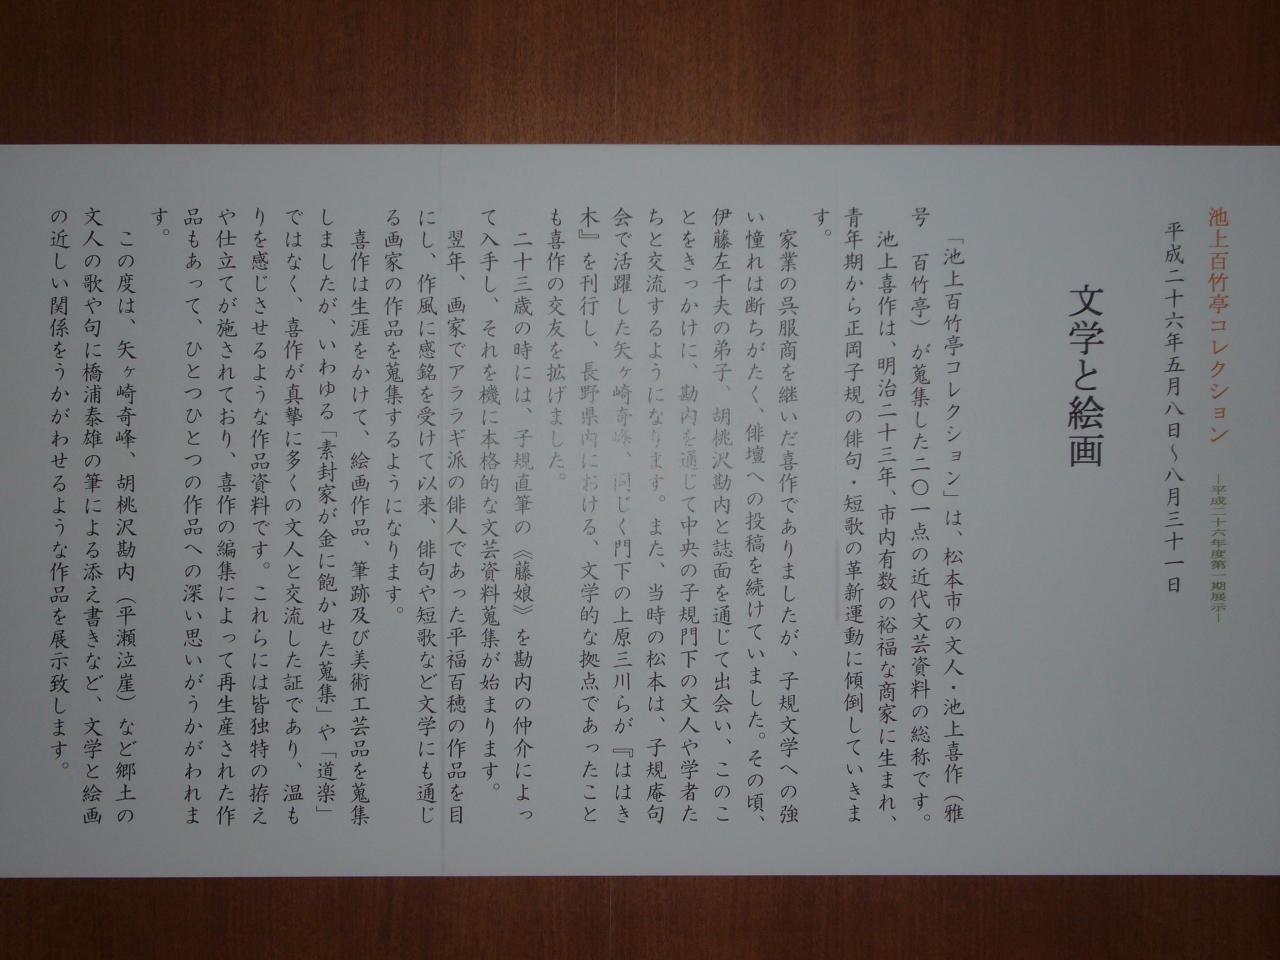 池上百竹亭コレクション ―平成二十六年度第一期展示―
平成二十六年五月八日～八月三十一日
文学と絵画
「池上百竹亭コレクション」は、松本市の文人・池上喜作（雅
号　百竹亭）が蒐集した二〇一点の近代文芸資料の総称です。
池上喜作は、明治二十三年、市内有数の裕福な商家に生まれ、
青年期から正岡子規の俳句・短歌の革新運動に傾倒していきま
す。
家業の呉服商を継いだ喜作でありましたが、子規文学への強
い憧れは断ちがたく、俳壇への投稿を続けていました。その頃、
伊藤左千夫の弟子、胡桃沢勘内と誌面を通じて出会い、このこ
とをきっかけに、勘内を通じて中央の子規門下の文人や学者た
ちと交流するようになります。また、当時の松本は、子規庵句
会で活躍した矢ヶ崎奇峰、同じく門下の上原三川らが『ははき
木』を刊行し、長野県内における、文学的な拠点であったこと
も喜作の交友を拡げました。
二十三歳の時には、子規直筆の《藤娘》を勘内の仲介によっ
て入手し、それを機に本格的な文芸資料蒐集が始まります。
翌年、画家でアララギ派の俳人であった平福百穂の作品を目
にし、作風に感銘を受けて以来、俳句や短歌など文学にも通じ
る画家の作品を蒐集するようになります。
喜作は生涯をかけて、絵画作品、筆跡及び美術工芸品を蒐集
しましたが、いわゆる「素封家が金に飽かせた蒐集」や「道楽」
ではなく、喜作が真摯に多くの文人と交流した証であり、温も
りを感じさせるような作品資料です。これらには皆独特の拵え
や仕立てが施されており、喜作の編集によって再生産された作
品もあって、ひとつひとつの作品への深い思いがうかがわれま
す。
この度は、矢ヶ崎奇峰、胡桃沢勘内（平瀬泣崖）など郷土の
文人の歌や句に橋浦泰雄の筆による添え書きなど、文学と絵画
の近しい関係をうかがわせるような作品を展示致します。